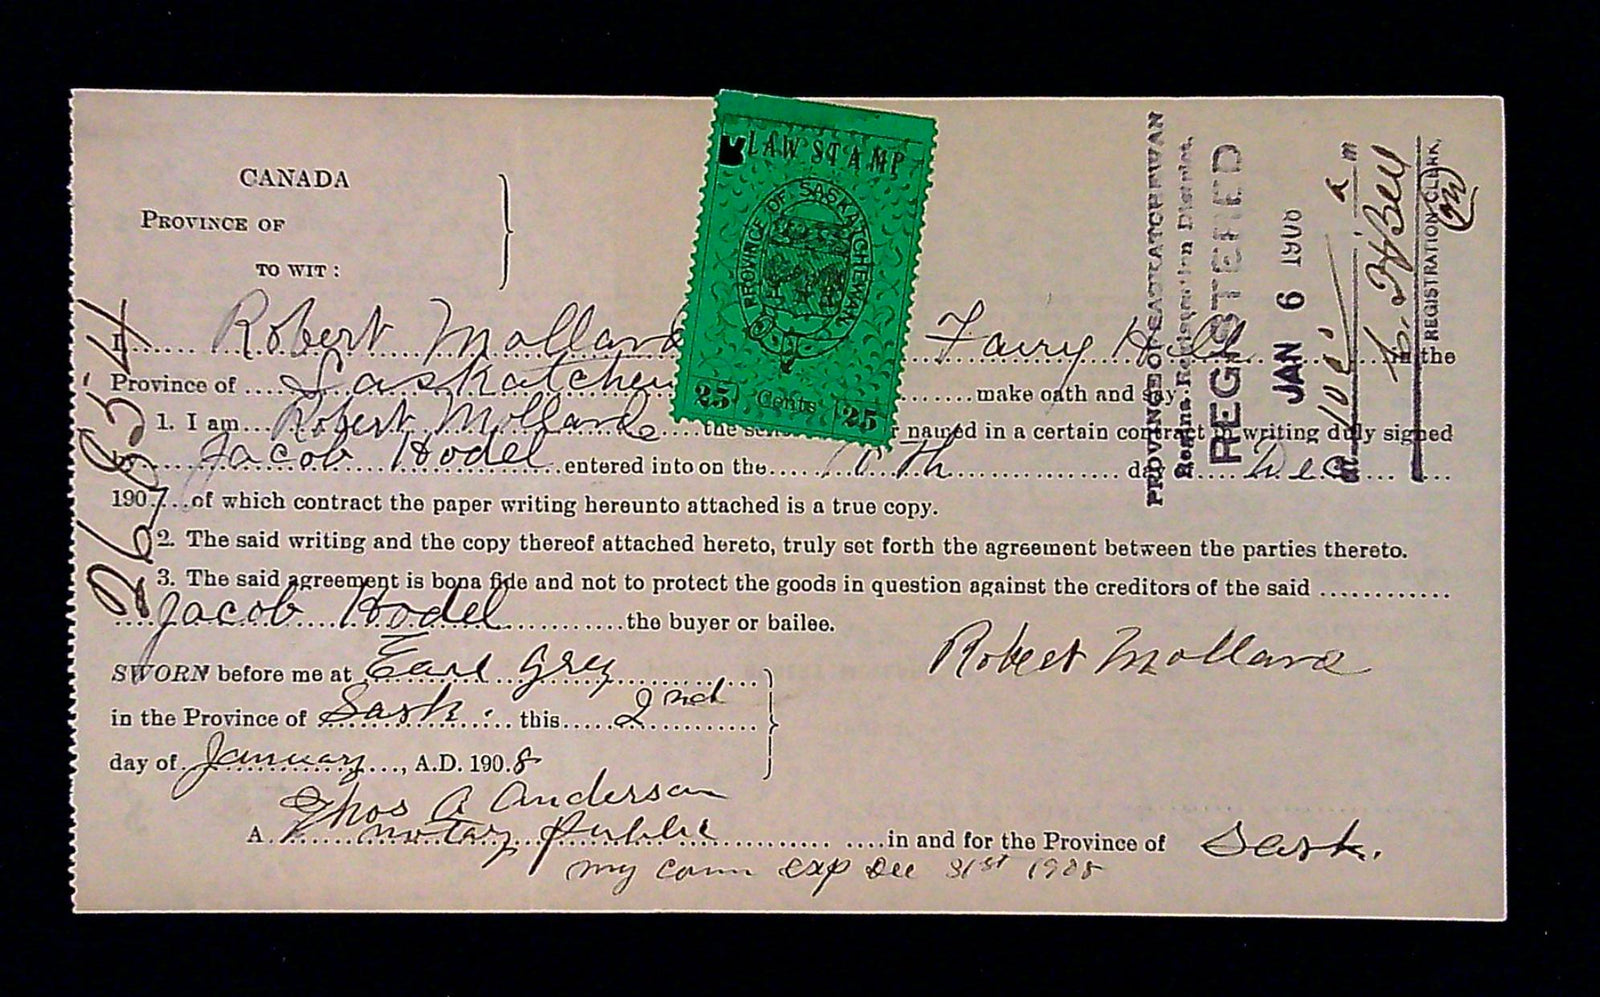 CANADA
PROVINCE OF
TO WIT:
LAW STAMP
PROVINCE OF SASKATCHEWAN
25 Cents 25
I Robert Mollard Fairy Hill in the
Province of Saskatchew make oath and say
1. I am Robert Mollard the named in a certain contract in writing duly signed
by Jacob Hodel entered into on the day Dec
1907 of which contract the paper writing hereunto attached is a true copy.
2. The said writing and the copy thereof attached hereto, truly set forth the agreement between the parties thereto.
3. The said agreement is bona fide and not to protect the goods in question against the creditors of the said
Jacob Hodel the buyer or bailee.
Robert Mollard
SWORN before me at Earl Grey
in the Province of Sask. this 2nd
day of January, A.D. 1908
Thos A Anderson
A notary public in and for the Province of Sask.
my comm exp Dec 31st 1908
PROVINCE OF SASKATCHEWAN
Regina Registration District.
REGISTERED
JAN 6
REGISTRATION CLERK.